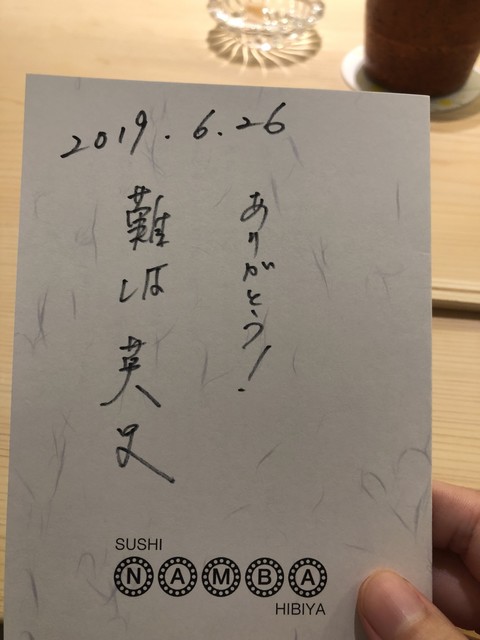 2019.6.26
ありがとう!
難波 英史
SUSHI
NAMBA
HIBIYA